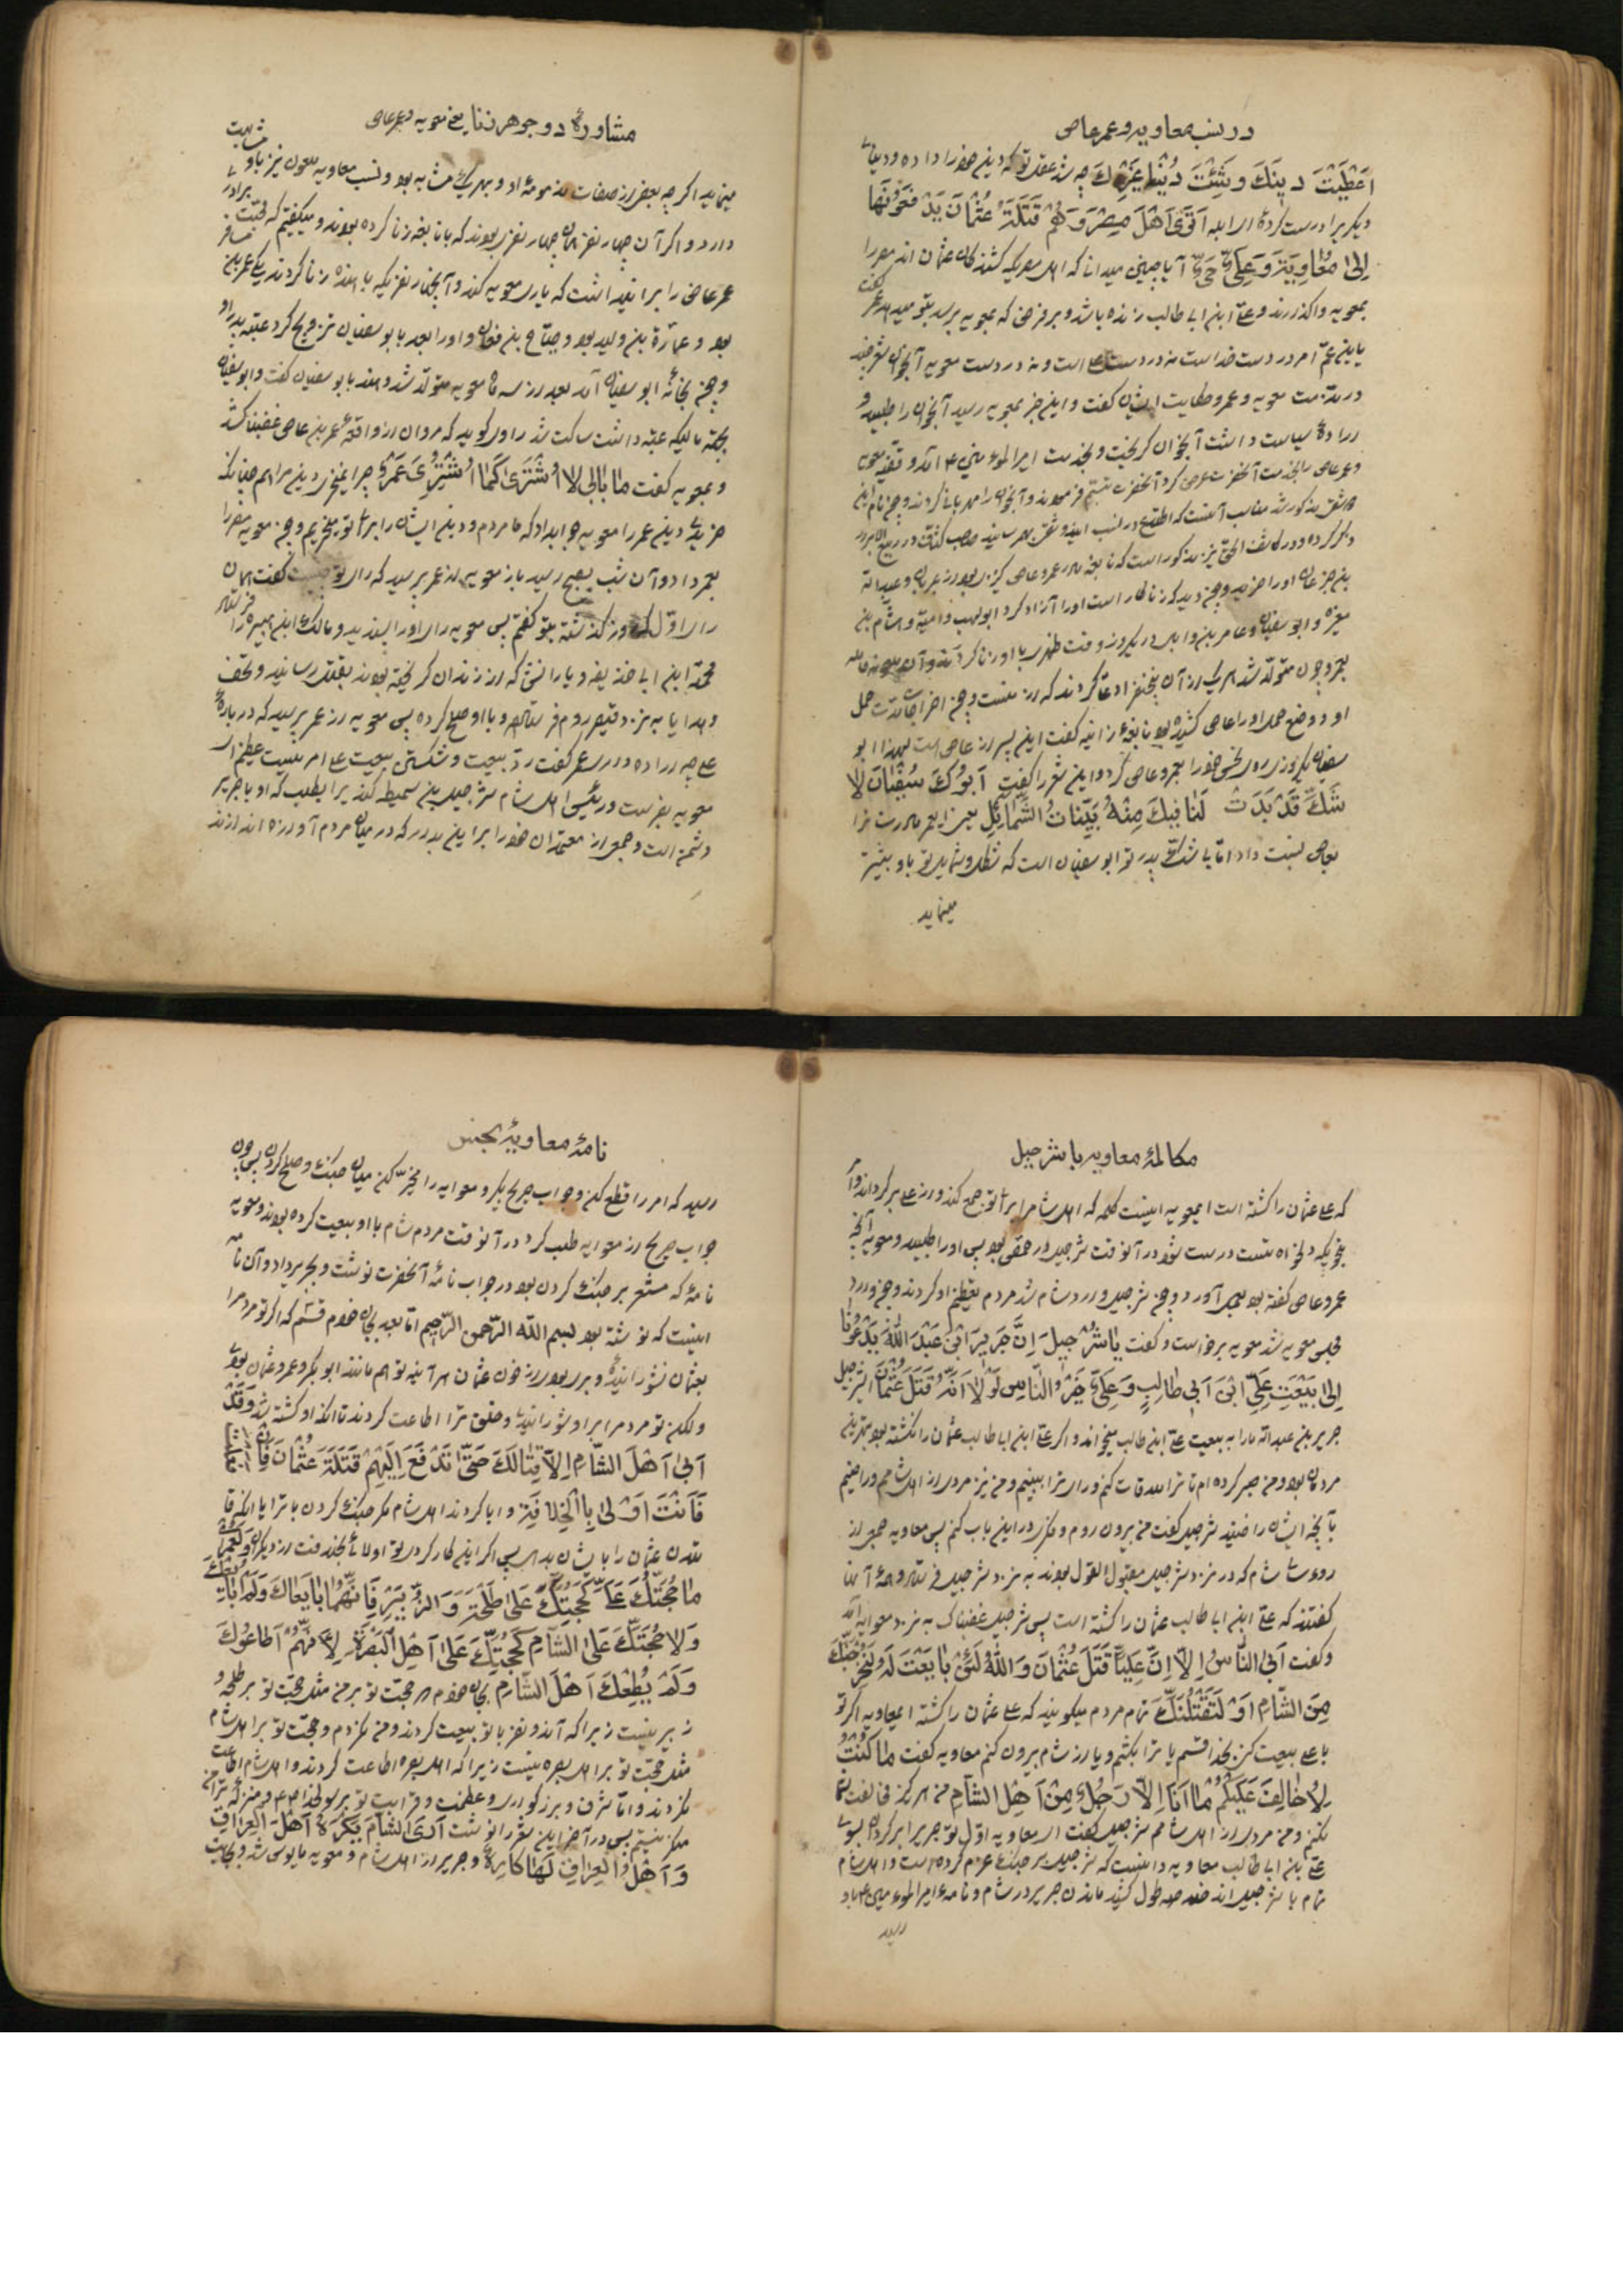 در نسب معاویه و عمر عاص
اَعْطَیْتَ دینَكَ وَ دُنْیا غَیْرِكَ چه شد عقل تو که دین خود را داده و دنیای
دیگر برا درست کردهٔ اَتَریٰ اَهْلَ مِصْرَ وَ هُمْ قَتَلَةُ عُثْمانَ یَدْفَعُونَها
اِلیٰ مُعاوِیَةَ وَ عَلِیٌّ حَیٌّ آیا چنین میدانی که اهل مصر که کشندگان عثمان اند مصر را
بمعویه واگذارند و علی ابن ابی طالب زنده باشد و بر فرضی که بمعویه برسد بتو میدهد عمر گفت
یابن عمّ امر در دست خداست نه در دست علی است و نه در دست معویه آنجوان شعر چند
در مذمت معویه و عمرو حکایت ایشان گفت و این خبر بمعویه رسید آنجوان را طلبید و
ارادهٔ سیاست داشت آنجوان گریخت و بخدمت امیرالمؤمنین ع آمد و قضیه معویه
و عمر عاص را بخدمت آنحضرت عرض کرد آنحضرت تبسّم فرمودند و آنجوان را مهربانی کردند و چون نام این
بن جزعان او را خرید و چون دید که زناکار است او را آزاد کرد ابولهب و امیّة و هشام بن
مغیره و ابو سفیان و عاص بن وایل در یک روز و قت طهر با او زنا کردند و آن ملعونه حامله
بعمرو چون متولّد شد هر یک از آن پنجنفر ادّعا کردند که از منست و چون اخراجات مدّت حمل
او و وضع حمل او را عاص کشیده بود نابغهٔ زانیه گفت این پسر از عاص است لهذا ابو
سفیان یکروزی روی نحس خود را بعمرو عاص کرد و این شعر را گفت اَبُوكَ سُفْیانَ لا
شَكَّ قَدْ بَدَتْ لَنا فیكَ مِنْهُ بَیِّناتُ الشَّمائِلِ یعنی ایعمر مادرت ترا
بعاص نسبت داد امّا بی شکّ پدر تو ابو سفیان است که شکل و شمایل تو باو بیشتر
مینماید
مشاورهٔ دو جوهر زنا یعنی معویه و عمر عاص
مینماید اگر چه بعضی از صفات مذمومهٔ او و بهر یک مشابه بود و نسب معاویه ملعون نیز باو مشابهت
دارد و اگر آن چهار نفر همان چهار نفری بودند که با نابغه زنا کرده بودند و میگفتیم که محبّت برادری
عمر عاص را برا نید داشت که یاری معویه کند و آنچهار نفریکه با هنده زنا کردند یکی عمر بن مسافر
بود و عمارة بن ولید بود و صبّاح بن مغان و او را بعد با بو سفیان تزویج کرد عتبه پدر او
و چون بخانهٔ ابو سفیان آمد بعد از سه ماه معویه متولّد شد و هند بابو سفیان گفت و ابو سفیان
بجهة مالیکه عتبه داشت ساکت شد راوی گوید که مروان از واقعهٔ عمر بن عاص غضبناک شد
و بمعویه گفت ما بالی لا اُشْتَریٰ كَما اُشْتُرِیَ عَمْرٌو چرا نمیخری دین مرا هم چنانکه
خریدی دین عمر را معویه جوابداد که ما مردم و دین ایشان را برای تو میخریم و چون معویه مصر را
بعمر داد و آن شب بصبح رسید باز معویه از عمر پرسید که رای تو چیست گفت همان
رای اوّل که روز گذشته بتو گفتم پس معویه رای او را پسندید و مالک ابن هبیره را فرستاد
محمد ابن ابی حذیفه و یارانش که از زندان گریخته بودند بقتل رسانید و تحف
و هدایا به نزد قیصر روم فرستاد و با او صلح کرده پس معویه از عمر پرسید که در بارهٔ
علی چه رای داری عمر گفت ردّ بیعت و شکستن بیعت علی امریست عظیم ای
معویه بفرست و رئیس اهل شام شرجیل بن سمیط کندیرا بطلب که او با جریر
دشمن است و جمعی از معتمدان خود را برا این بدار که در میان مردم آوازه اندازند
مکالمهٔ معاویه با شرجیل
که علی عثمان را کشته است ایمعویه اینست کلمه که اهل شام را برای تو جمع کند و از علی برگرداند و امر
بنحویکه دلخواه تست درست شود در آنوقت شرجیل در حمص بود پس او را طلبید و معویه آنچه
عمرو عاص گفته بود بعمل آورد و چون شرجیل وارد شام شد مردم تعظیم او کردند و چون وارد
مجلس معویه شد معویه برخواست و گفت یا شُرْجیل اِنَّ جَریرَ ابْنَ عَبْدَ اللهِ یَدْعُونا
اِلیٰ بَیْعَتِ عَلِیِّ ابْنَ اَبی طالِبٍ وَ عَلِیٌّ خَیْرُ النّاسِ لَوْلا اَنَّهُ قَتَلَ عُثْمانَ ایشرجیل
جریر بن عبدالله ما را به بیعت علی ابن طالب میخواند و اگر علی ابن ابی طالب عثمان را نکشته بود بهترین
مردمان بود و من صبر کرده ام تا ترا ملاقات کنم و رای ترا ببینم و من نیز مردی از اهل شامم و راضیم
بآنچه ایشان راضیند شرجیل گفت من بیرون روم و فکری در این باب کنم پس معاویه جمعی از
روءسای شام که در نزد شرجیل مقبول القول بودند به نزد شرجیل فرستاد و همهٔ آنها
گفتند که علی ابن ابی طالب عثمان را کشته است پس شرجیل غضبناک به نزد معویه آمد
و گفت اَبَی النّاسُ اِلّا اِنَّ عَلِیّاً قَتَلَ عُثْمانَ وَ اللهِ لَئِنْ بایَعْتَ لَهُ لَنُخْرِجَنَّكَ
مِنَ الشّامِ اَوْ لَنَقْتُلَنَّكَ تمام مردم میگویند که علی عثمان را کشته ایمعاویه اگر تو
با علی بیعت کنی بخدا قسم یا ترا بکشم و یا از شام بیرون کنم معاویه گفت ما كُنْتُ
لِاُخالِفَ عَلَیْكُمْ ما اَنَا اِلّا رَجُلٌ مِنْ اَهْلِ الشّامِ من هرگز مخالفت شما
نکنم و من مردی از اهل شامم شرجیل گفت ای معاویه اوّل تو جریر را برگردان بسوی
علی بن ابی طالب معاویه دانست که شرجیل بر جنگ عزم کرده است و اهل شام
تمام با شرجیل اند طول کشید ماندن جریر در شام و نامهٔ امیرالمؤمنین ع باو
رسید
نامهٔ معاویهٔ بجنس
رسید که امر را قطع کن و جواب جریح بگیر و معویه را مخیّر کن میان جنگ و صلح کردن پس چون
جواب جریح از معویه طلب کرد در آنوقت مردم شام با او بیعت کرده بودند و معویه
نامهٔ که مشعر بر جنگ کردن بود در جواب نامهٔ آنحضرت نوشت و بجریر داد و آن نامه
اینست که نوشته بود بسم الله الرّحمن الرّحیم امّا بعد بجان خودم قسم که اگر تو مردم را
بعثمان نشورانیدهٔ و بری بودی از خون عثمان هر آینه تو هم مانند ابو بکر و عمر و عثمان بودی
و لکن تو مردم را برا او شورانیدی و خلق ترا اطاعت کردند تا آنکه او کشته شد وَقَدْ
اَبیٰ اَهْلَ الشّامِ اِلّا قِتالَكَ حَتّیٰ تَدْفَعَ اِلَیْهِمْ قَتَلَةَ عُثْمانَ
فَاَنْتَ اَوْلیٰ بِالْخِلافَةِ و ابا کردند اهل شام مگر جنگ کردن با ترا یا آنکه قا
تلان عثمان را با یشان بدهی پس اگر این کار کردی تو اولائی بخلافت از دیگران وَ لَعَمْری
ما حُجَّتُكَ عَلَیَّ كَحُجَّتِكَ عَلیٰ طَلْحَةَ وَ الزُّبَیْرِ فَاِنَّهُما بایَعاكَ وَ لَمْ اُبایِعْكَ
وَلا حُجَّتُكَ عَلَی الشّامِ كَحُجَّتِكَ عَلیٰ اَهْلِ الْبَصْرَةِ لِاَنَّهُمْ اَطاعُوكَ
وَ لَمْ یُطِعْكَ اَهْلَ الشّامِ بجان خودم که حجّت تو بر من مثل حجّت تو بر طلحه و
زبیر نیست زیرا که آندو نفر با تو بیعت کردند و من نکردم و حجّت تو بر اهل شام
مثل حجّت تو بر اهل بصره نیست زیرا که اهل بصره اطاعت کردند و اهل شام اطاعت
نکردند و امّا شرف و بزرگواری و عظمت و قرابت تو برسولخدا ص و منزلهٔ ترا من
منکر نیستم پس در آخر این شعر را نوشت اَرَی الشّامَ یَكْرَهُ اَهْلَ الْعِراقِ
وَ اَهْلُ الْعِراقِ لَها كارِهٌ و جریر از اهل شام و معویه مایوس شد و بجانب